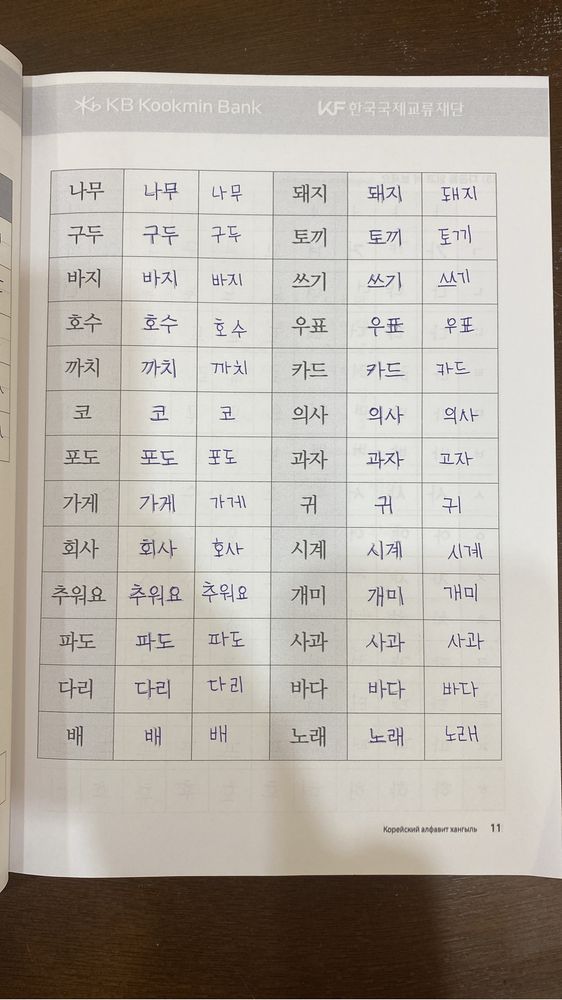 KB Kookmin Bank KF 한국국제교류재단
나무 나무 나무 돼지 돼지 돼지
구두 구두 구두 토끼 토끼 토끼
바지 바지 바지 쓰기 쓰기 쓰기
호수 호수 호수 우표 우표 우표
까치 까치 까치 카드 카드 카드
코 코 코 의사 의사 의사
포도 포도 포도 과자 과자 고자
가게 가게 가게 귀 귀 귀
회사 회사 호사 시계 시계 시계
추워요 추워요 추워요 개미 개미 개미
파도 파도 파도 사과 사과 사과
다리 다리 다리 바다 바다 바다
배 배 배 노래 노래 노래
Корейский алфавит хангыль 11